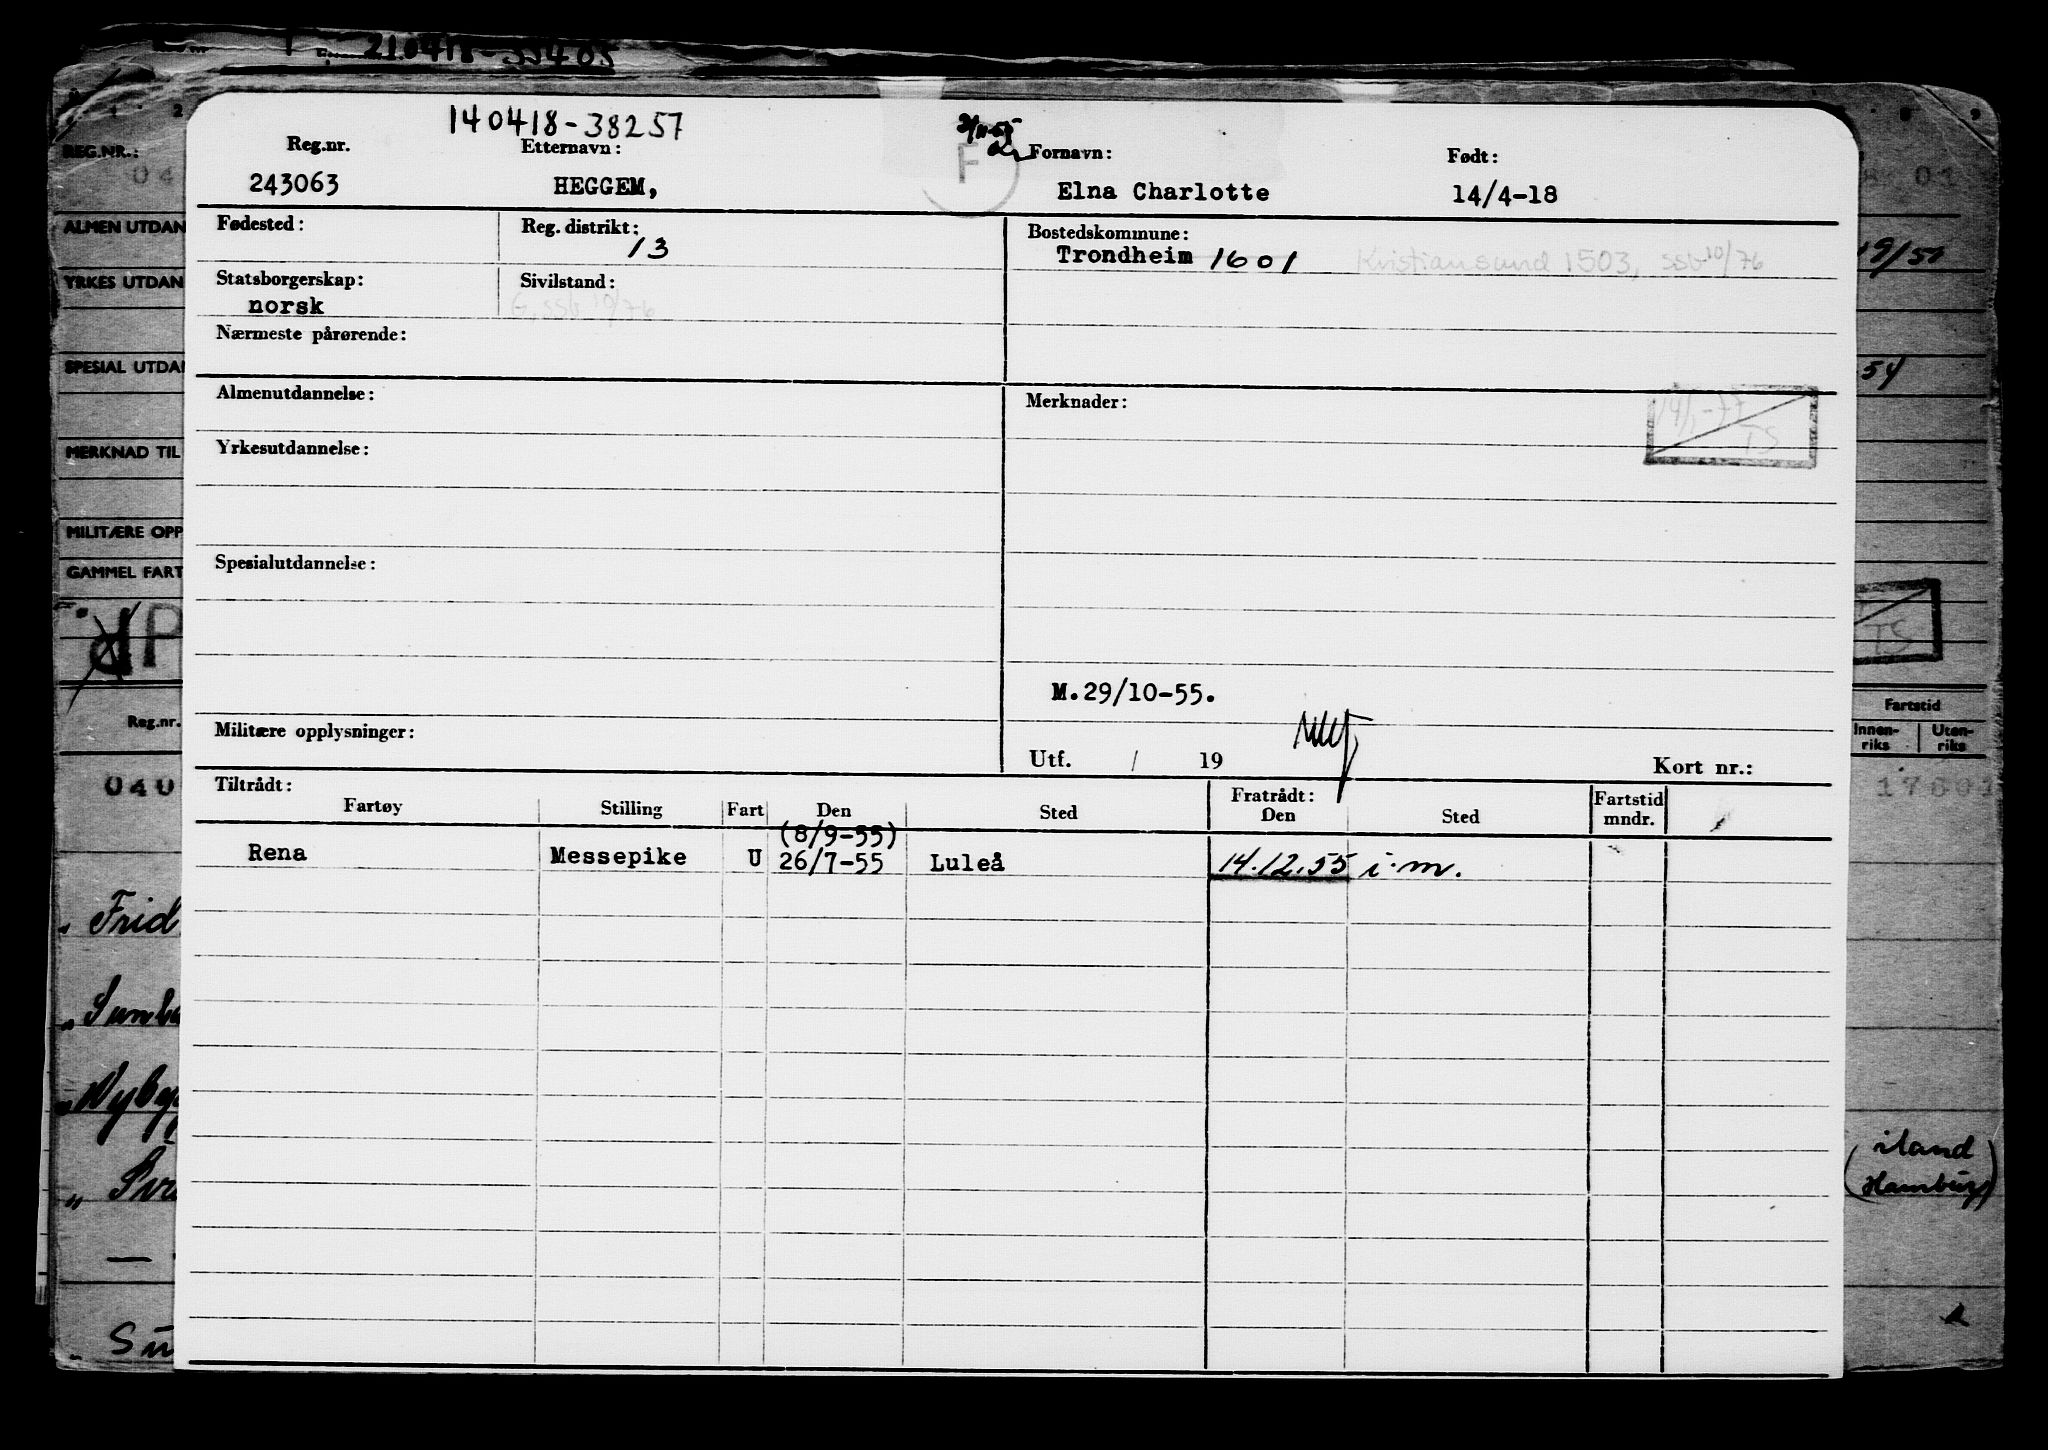 210418-55405
140418-38257
Reg.nr. Etternavn: Fornavn: Født:
243063 HEGGEM, F Elna Charlotte 14/4-18
Fødested: Reg. distrikt: 13 Bostedskommune:
Trondheim 1601 Kristiansund 1503, ssb 10/76
Statsborgerskap: Sivilstand:
norsk G, ssb 10/76
Nærmeste pårørende:
Almenutdannelse: Merknader:
TS
Yrkesutdannelse:
Spesialutdannelse:
M.29/10-55.
Militære opplysninger:
Utf. / 19 Kort nr.:
Tiltrådt: Fratrådt:
Fartøy Stilling Fart Den Sted Den Sted Fartstid mndr.
(8/9-55)
Rena Messepike U 26/7-55 Luleå 14.12.55 i.m.
REG.NR.:
04
ALMEN UTDAN
YRKES UTDAN
SPESIAL UTDAN
54
MERKNAD TIL
MILITÆRE OPP
GAMMEL FART
TS
Reg.nr.
Fartstid
Innen-riks Uten-riks
040
Frid
Sumba
(iland
Hamburg)
Su